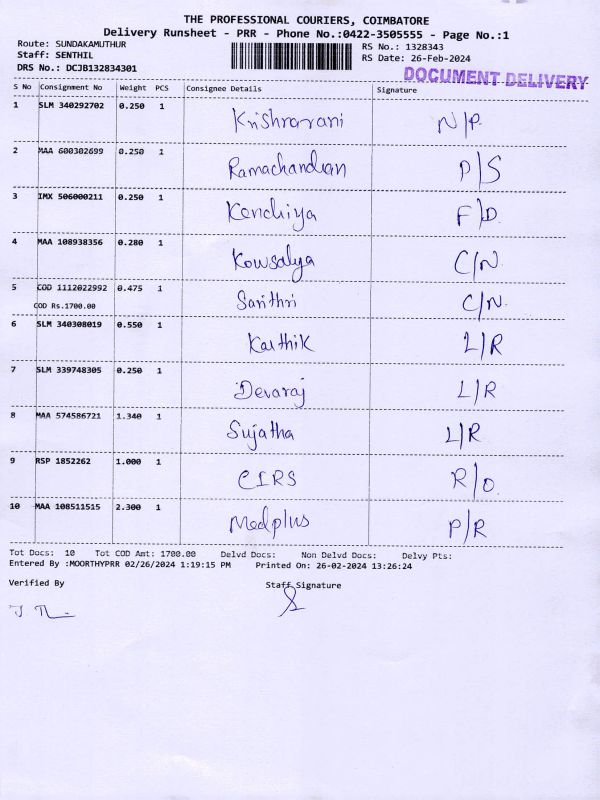 THE PROFESSIONAL COURIERS, COIMBATORE
Delivery Runsheet - PRR - Phone No.:0422-3505555 - Page No.:1
Route: SUNDAKAMUTHUR RS No.: 1328343
Staff: SENTHIL RS Date: 26-Feb-2024
DRS No.: DCJB132834301 DOCUMENT DELIVERY
S No Consignment No Weight PCS Consignee Details Signature
1 SLM 340292702 0.250 1 Krishnarani N/P.
2 MAA 600302699 0.250 1 Ramachandran P/S
3 IMX 506000211 0.250 1 Kenchiya F/D.
4 MAA 108938356 0.280 1 Kowsalya C/N.
5 COD 1112022992 0.475 1 C/N.
COD Rs.1700.00
6 SLM 340308019 0.550 1 Karthik L/R
7 SLM 339748305 0.250 1 Devaraj L/R
8 MAA 574586721 1.340 1 Sujatha L/R
9 RSP 1852262 1.000 1 CIRS R/O.
10 MAA 108511515 2.300 1 Medplus P/R
Tot Docs: 10 Tot COD Amt: 1700.00 Delvd Docs: Non Delvd Docs: Delvy Pts:
Entered By :MOORTHYPRR 02/26/2024 1:19:15 PM Printed On: 26-02-2024 13:26:24
Verified By Staff Signature